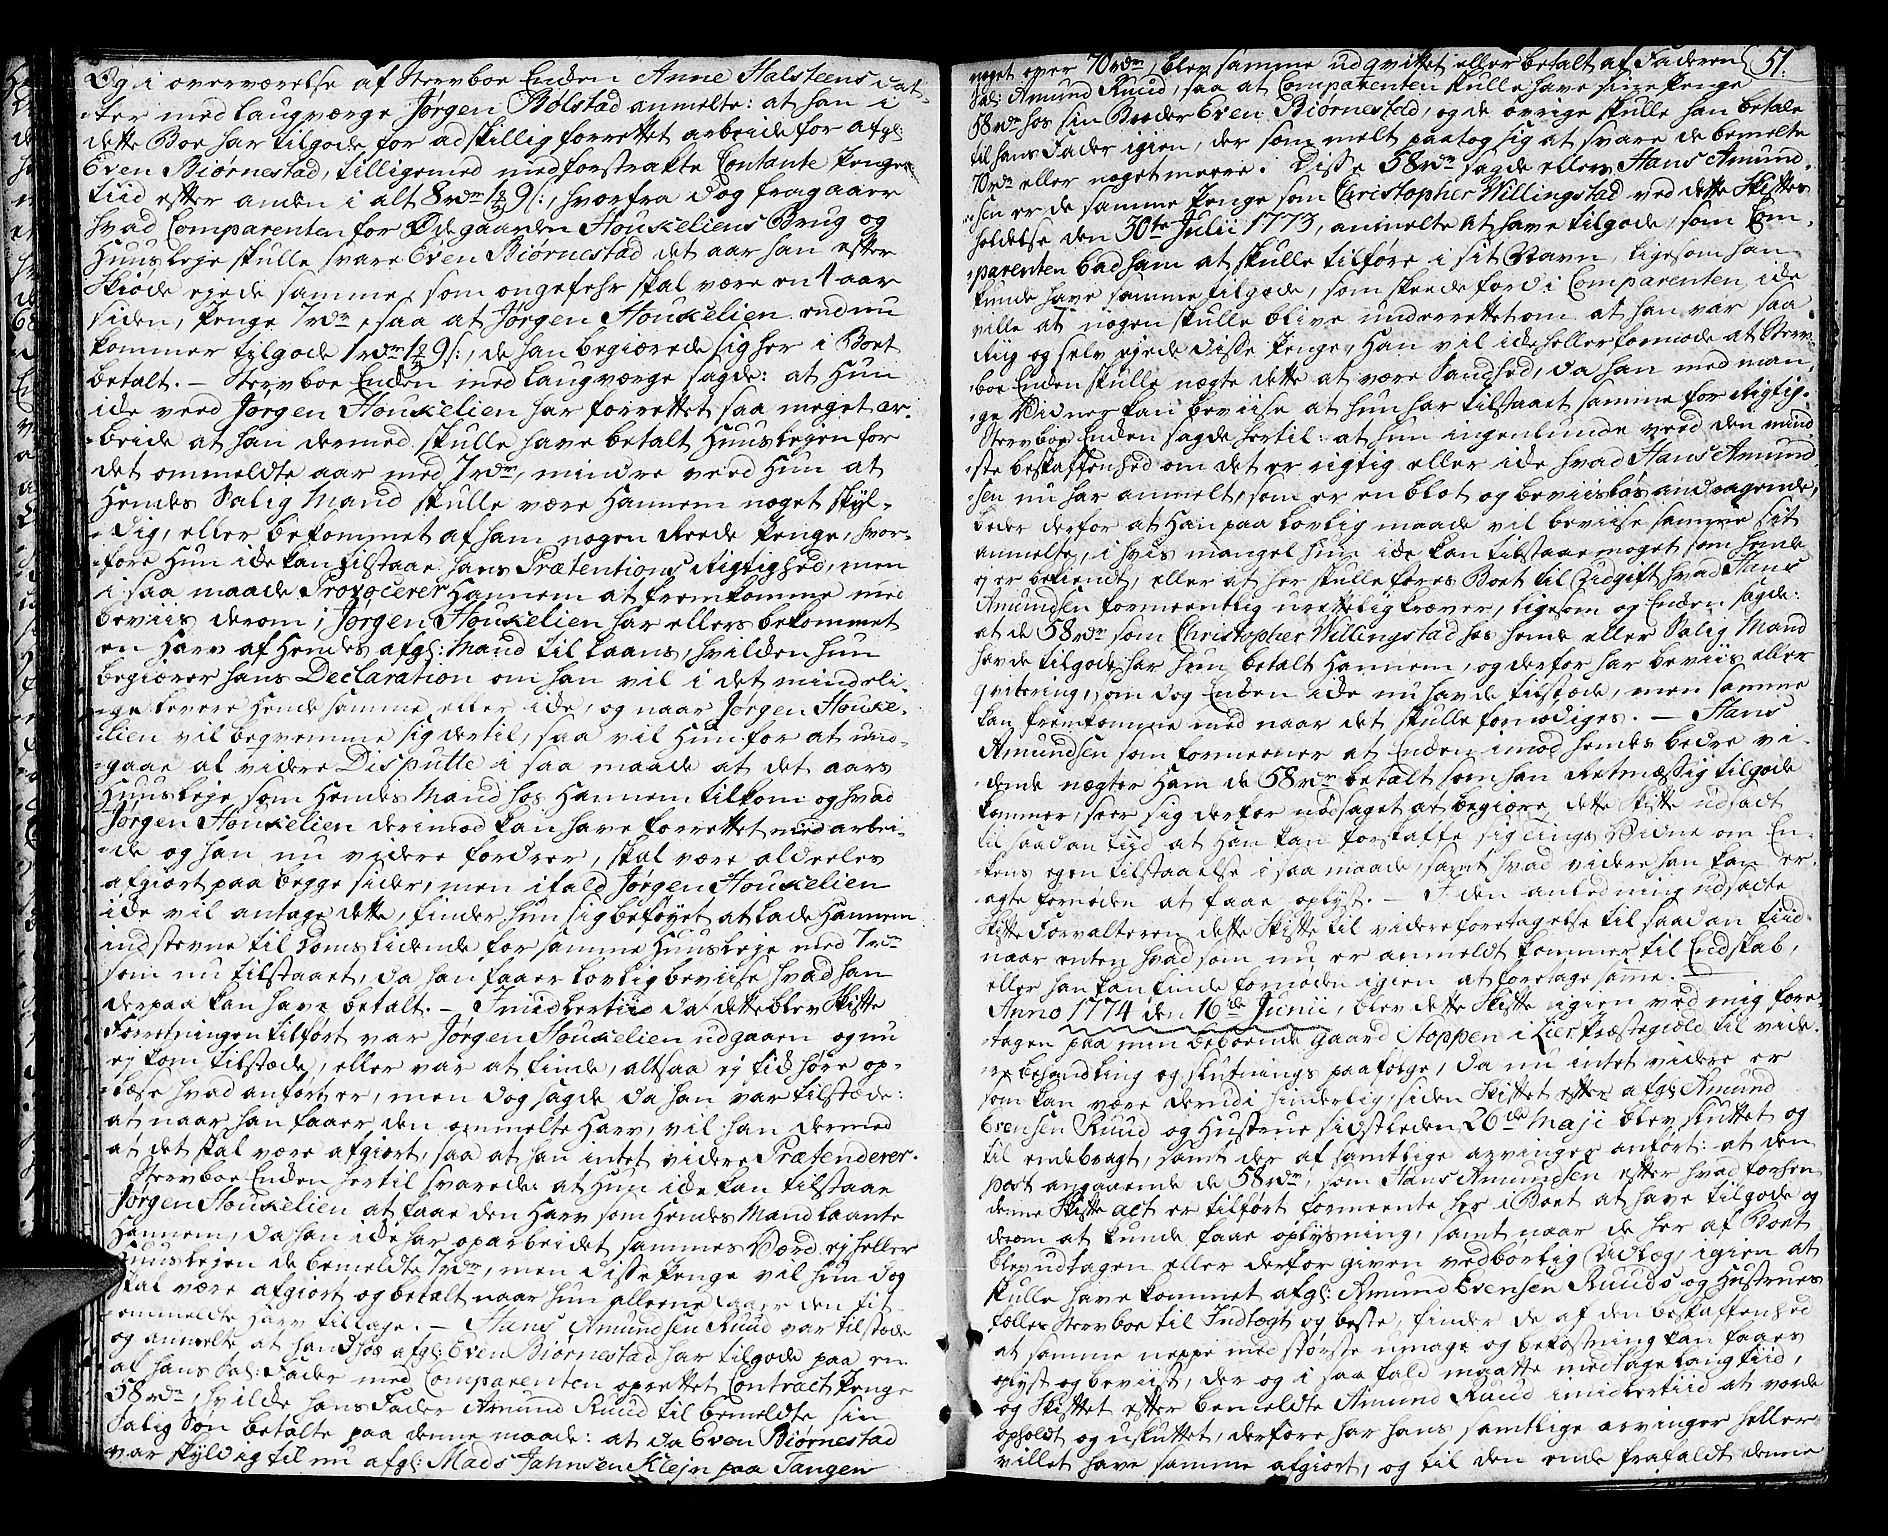 Og i overværelse af Stervboe Enden Anne Halsteens dat-
-ter med laugværge Jørgen Bølstad anmelte: at han i
dette Boe har tilgode for adskillig forrettet arbeide for afgl:
Even Biørnestad, tilligemed med forstrakte Contante Penge
tiid efter anden i alt 8 rdr 1 1/2 9 s:, hvorfra dog fragaaer
hvad Comparenten for Ødegaarden Houkeliens Brug og
Huusleje skulle svare Even Biørnestad det aar han efter
Skiøde eyede samme, som ongefehr skal være en 4 aar
siden, Penge 7 rdr, saa at Jørgen Houkelien endnu
kommer tilgode 1 rdr 1 1/2 9 s:, de han begiærede sig her i Boet
betalt. – Stervboe Enden med laugværge sagde: at Hun
ide veed Jørgen Houkelien har forrettet saa meget ar-
-beide at han dermed skulle have betalt Huuslejen for
det ommeldte aar med 7 rdr, mindre veed Hun at
Hendes Salig Mand skulle være Hannem noget skyl-
-dig, eller bekommet af ham nogen Reede Penge, hvor-
-fore Hun ide kan tilstaae hans Prætentions Rigtighed, men
i saa maade Provocerer Hannem at fremkomme med
beviis derom; Jørgen Houkelien har ellers bekommet
en Harv af Hendes afgl: Mand til Laans, hvilden hun
begiærer hans Declaration om han vil i det mindeli-
-ge levere Hende samme eller ide, og naar Jørgen Houke-
-lien vil beqvemme sig dertil, saa vil Hun for at und-
-gaae al videre Disputte i saa maade at det aars
Huusleje som Hendes Mand hos Hannem tilkom og hvad
Jørgen Houkelien derimod kan have forrettet med arbei-
-de og han nu videre fordrer, skal være aldeeles
afgiort paa begge sider, men ifald Jørgen Houkelien
ide vil antage dette, finder hun sig beføyet at lade Hannem
indstevne til Doms lidende for samme Huusleje med 7 rdr
som nu tilstaaet, da han faaer lovlig beviise hvad han
derpaa kan have betalt. – Imidlertiid da dette blev Skifte
Forretningen tilført var Jørgen Houkelien udgaaen og nu
ej kom tilstæde, eller var at finde, altsaa ej lid høre op-
-læse hvad anført er, men dog sagde da han var tilstæde:
at naar han faaer den ommelte Harv, vil han dermed
at det skal være afgiort, saa at han intet videre Prætenderer.
Stervboe Enden hertil svarede: at Hun ide kan tilstaae
Jørgen Houkelien at faae den Harv som Hendes Mand laante
Hannem, da han ide har oparbeidet sammes Værd ej heller
Huuslejen de bemeldte 7 rdr, men disse Penge vil hun dog
skal være afgiort og betalt naar hun alleene faaer den tit-
ommeldte Harv tilbage. – Hans Amundsen Ruud var tilstæde
og anmelte, at han hos afgl: Even Biørnestad har tilgode paa en
af hans Sal: Fader med Comparenten oprettet Contract Penge
58 rdr, hvilde hans Fader Amund Ruud til bemeldte sin
Salig Søn betalte paa denne maade: at da Even Biørnestad
var skyldig til nu afgl: Mads Jahnsen Klejn paa Tangen
51.
noget over 70 rdr, blev samme udqvittet eller betalt af Faderen
Sal: Amund Ruud, saa at Comparenten skulle have sine Penge
58 rdr hos sin Broder Even Biørnestad, og de øvrige skulle han betale
til hans Fader igien, der som melt paatog sig at svare de bemelte
70 rdr eller noget meere. Disse 58 rdr sagde ellers Hans Amund-
-sen er de samme Penge som Christopher Willingstad ved dette Skiftes
holdelse den 30te Julii 1773, anmelte at have tilgode, som Com-
-parenten bad ham at skulle tilføre i sit Navn, ligesom han
kunde have samme tilgode, som skeede fordi Comparenten ide
ville at nogen skulle blive underrettet om at han var saa
Riig og selv ejede disse Penge, Han vil ide heller formode at Sterv-
-boe Enden skulle nægte dette at være Sandhed, da han med man-
-ge Vidner kan beviise at hun har tilstaaet samme for Rigtig.
Stervboe Enden sagde hertil: at hun ingenlunde veed den mind-
-ste beskaffenhed om det er rigtig eller ide hvad Hans Amund-
-sen nu har anmelt, som er en blot og beviisløs andragende,
beder derfor at Han paa lovlig maade vil beviise samme sit
anmelte, i hvis mangel hun ide kan tilstaae noget som hende
ej er bekiendt, eller at her skulle føres Boet til Udgift hvad Hans
Amundsen formeentlig urettelig kræver, ligesom og Enden sagde:
at de 58 rdr som Christopher Willingstad hos hende eller Salig Mand
havde tilgode har hun betalt Hannem, og derfor har beviis eller
qvitering, som dog Enden ide nu havde tilstæde, men samme
kan fremkomme med naar det skulle fornødiges. – Hans
Amundsen som formeener at Enden imod hendes bedre vi-
-dende nægter Ham de 58 rdr betalt som han Retmæssig tilgode
kommer, seer sig derfor nødsaget at begiøre dette Skifte udsadt
til saadan tiid at Han kan forskaffe sig tings Vidne om En-
-kens egen tilstaaelse i saa maade, samt hvad videre han kan er-
-agte fornøden at faae oplyst. – I den anledning udsadte
Skifte Forvalteren dette Skifte til videre foretagelse til saadan tiid
naar enten hvad som nu er anmeldt kommer til Endskab,
eller han kan finde fornøden igien at foretage samme.
Anno 1774 den 16de Junii, blev dette Skifte igien ved mig fore-
-tagen paa min beboende gaard Stoppen i Lier Præstegiæld til vide-
-re behandling og slutnings paafølge, da nu intet videre er
som kan være derudi hinderlig, siden Skiftet efter afgl: Amund
Evensen Ruud og Hustrue sidstleden 26de Maji blev sluttet og
til endebragt, samt der af samtlige arvinger anført: at den
post angaaende de 58 rdr, som Hans Amundsen efter hvad forhen
denne Skifte act er tilført formeente her i Boet at have tilgode og
derom at kunde faae oplysning, samt naar de her af Boet
blev udtagen eller derfor given vedbørlig Udlæg, igien at
skulle have kommet afgl: Amund Evensen Ruuds og Hustrues
fælles Stervboe til Indtægt og beste, finder de af den beskaffenhed
at samme neppe med største umage og bekostning kan faaes
oplyst og beviist, der og i saa fald maatte medtage lang tiid,
og Skiftet efter bemeldte Amund Ruud imidlertiid at vorde
opholdt og usluttet, derfore har hans samtlige arvinger heller
villet have samme afgiort, og til den ende frafaldt denne